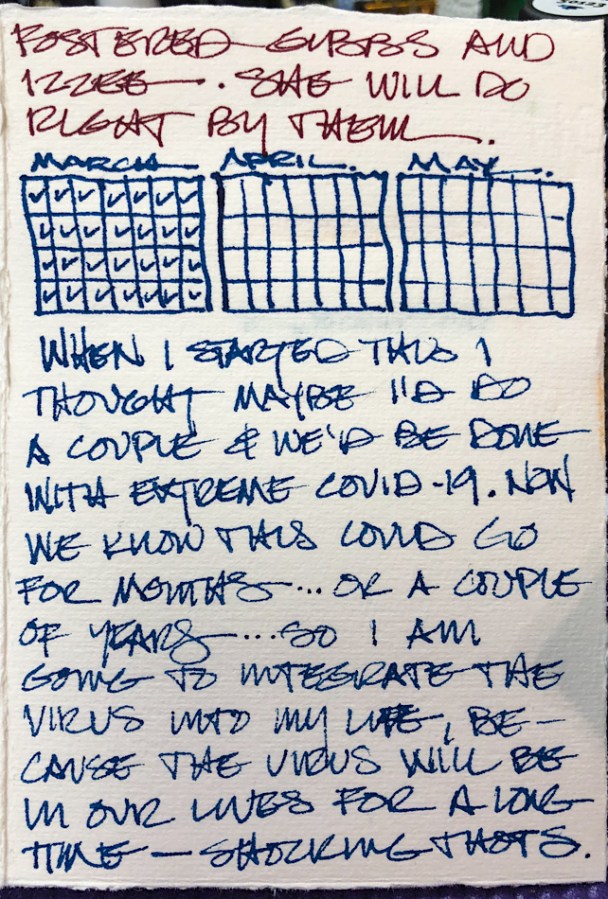 FOSTERED GIBBS AND
IZZEE. SHE WILL DO
RIGHT BY THEM.
MARCH APRIL. MAY..
WHEN I STARTED THIS I
THOUGHT MAYBE I'D DO
A COUPLE & WE'D BE DONE
WITH EXTREME COVID-19. NOW
WE KNOW THIS COULD GO
FOR MONTHS...OR A COUPLE
OF YEARS...SO I AM
GOING TO INTEGRATE THE
VIRUS INTO MY LIFE, BE-
CAUSE THE VIRUS WILL BE
IN OUR LIVES FOR A LONG
TIME — SHOCKING THOTS.